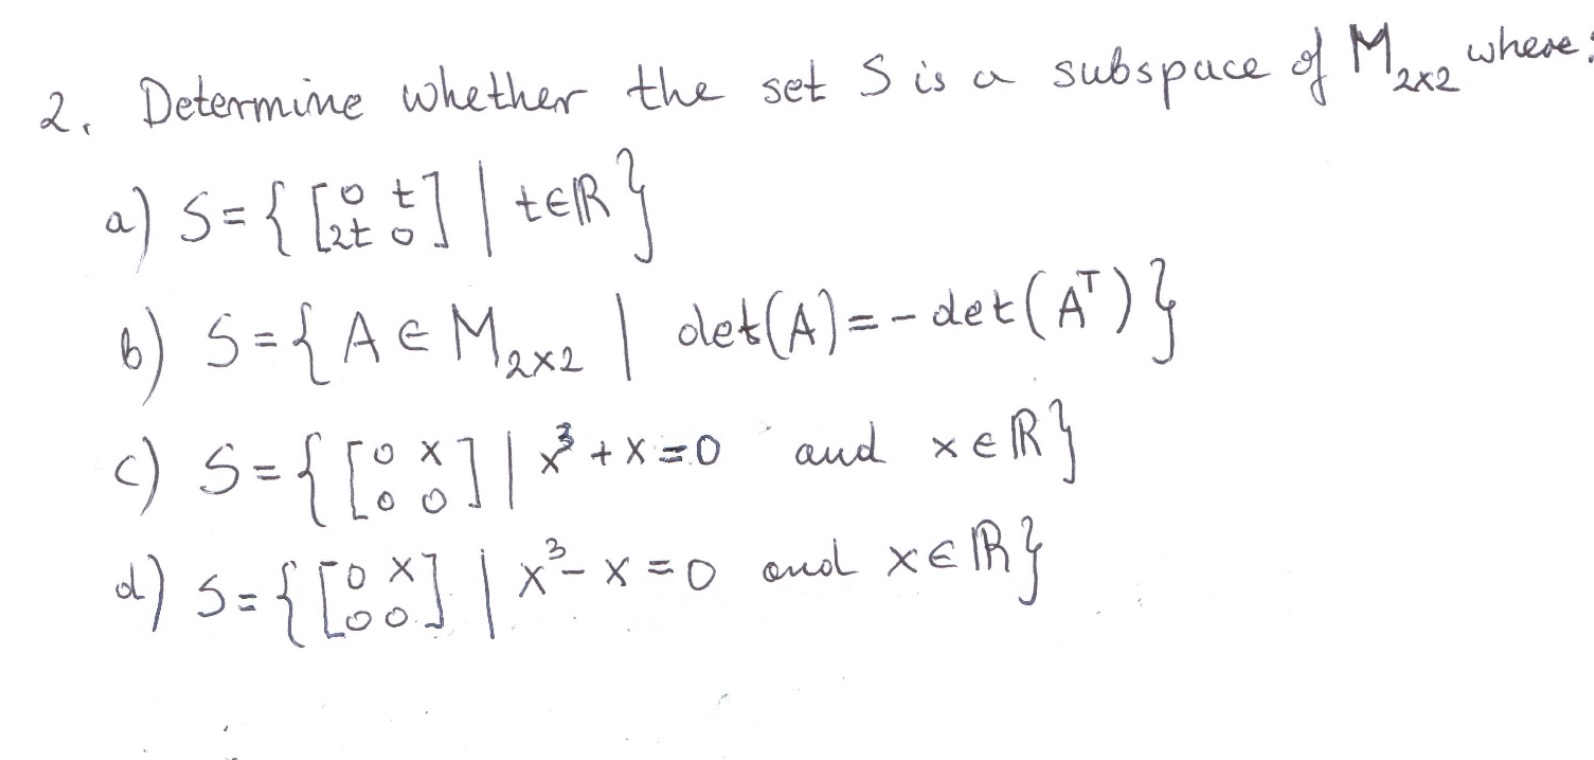 2. Determine whether the set S is a subspace of M₂ₓ₂ where:
a) S = { [0 t; 2t 0] | t∈ℝ }
b) S = { A ∈ M₂ₓ₂ | det(A) = - det(Aᵀ) }
c) S = { [0 x; 0 0] | x³ + x = 0 and x ∈ ℝ }
d) S = { [0 x; 0 0] | x³ - x = 0 and x ∈ ℝ }